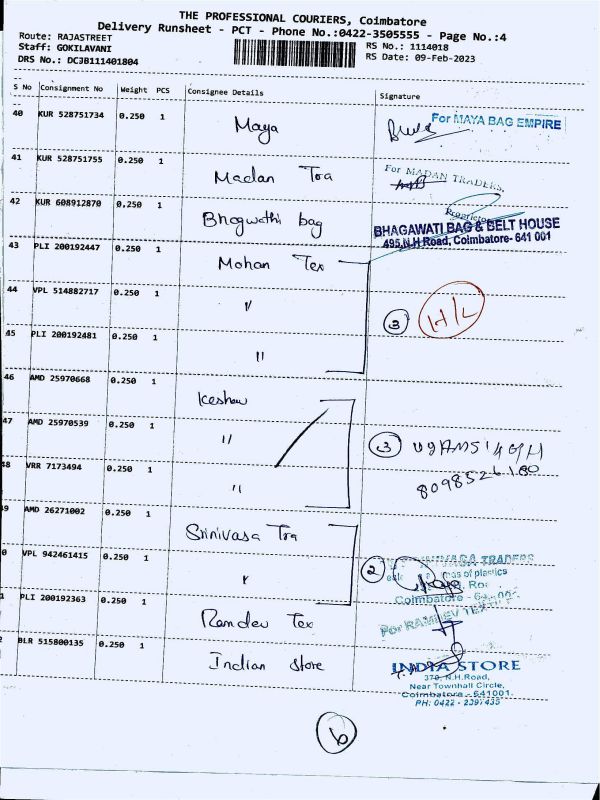 THE PROFESSIONAL COURIERS, Coimbatore
Delivery Runsheet - PCT - Phone No.:0422-3505555 - Page No.:4
Route: RAJASTREET
Staff: GOKILAVANI
DRS No.: DCJB111401804
RS No.: 1114018
RS Date: 09-Feb-2023
S No Consignment No Weight PCS Consignee Details Signature
40 KUR 528751734 0.250 1 Maya For MAYA BAG EMPIRE
41 KUR 528751755 0.250 1 Madan Tra For MADAN TRADERS,
Proprietor
42 KUR 608912870 0.250 1 Bhagwathi bag BHAGAWATI BAG & BELT HOUSE
495,N.H Road, Coimbatore- 641 001
43 PLI 200192447 0.250 1 Mohan Tex
44 VPL 514882717 0.250 1 〃 3 H/L
45 PLI 200192481 0.250 1 〃
46 AMD 25970668 0.250 1 Keshav
47 AMD 25970539 0.250 1 〃 3
48 VRR 7173494 0.250 1 〃 8098526180
49 AMD 26271002 0.250 1 Srinivasa Tra
0 VPL 942461415 0.250 1 〃 2 TRADERS
of plastics
Coimbatore
1 PLI 200192363 0.250 1 Ramdev Tex For RAMDEV TEX
2 BLR 515800135 0.250 1 Indian store INDIA STORE
370, N.H.Road,
Near Townhall Circle,
Coimbatore - 641001.
PH: 0422 - 2397435
6